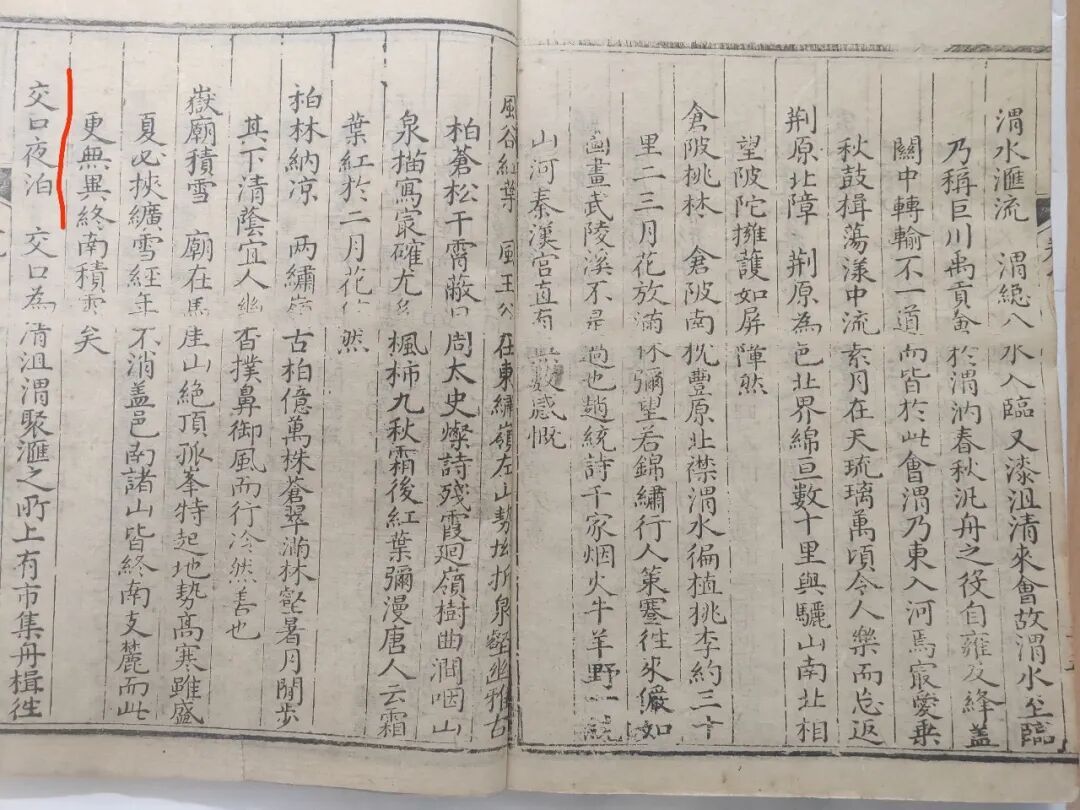 渭水滙流 渭緫八水入臨又漆沮清來會故渭水至臨
乃稱巨川禹貢會於渭汭春秋汎舟之役自雍及絳蓋
關中轉輸不一道而皆於此會渭乃東入河焉㝡愛乗
秋鼓楫蕩漾中流素月在天琉璃萬頃令人樂而忘返
荆原北障 荆原為邑北界綿亘數十里與驪山南北相
望陂陀擁護如屏障然
倉陂桃林 倉陂南枕豐原北襟渭水徧植桃李約三十
里二三月花放滿林彌望若錦繡行人策蹇徃來儼如
画畫武陵溪不是過也趙統詩千家烟火牛羊野一統
山河秦漢宫直有無數感慨
風谷紅葉 風王公在東繡嶺左山勢拗折泉壑幽雅古
柏蒼松干霄蔽日周太史燦詩残霞廻嶺樹曲澗咽山
泉描寫㝡確尤多楓柿九秋霜後紅葉彌漫唐人云霜
葉紅於二月花信然
柏林納凉 两繡嶺古柏億萬株蒼翠滿林壑暑月閒步
其下清陰宜人幽香撲鼻御風而行冷然善也
嶽廟積雪 廟在馬崖山絶頂孤峯特起地勢髙寒雖盛
夏必挾纊雪經年不消盖邑南諸山皆終南支麓而此
更無異終南積雪矣
交口夜泊 交口為清沮渭聚滙之所上有市集舟楫徃